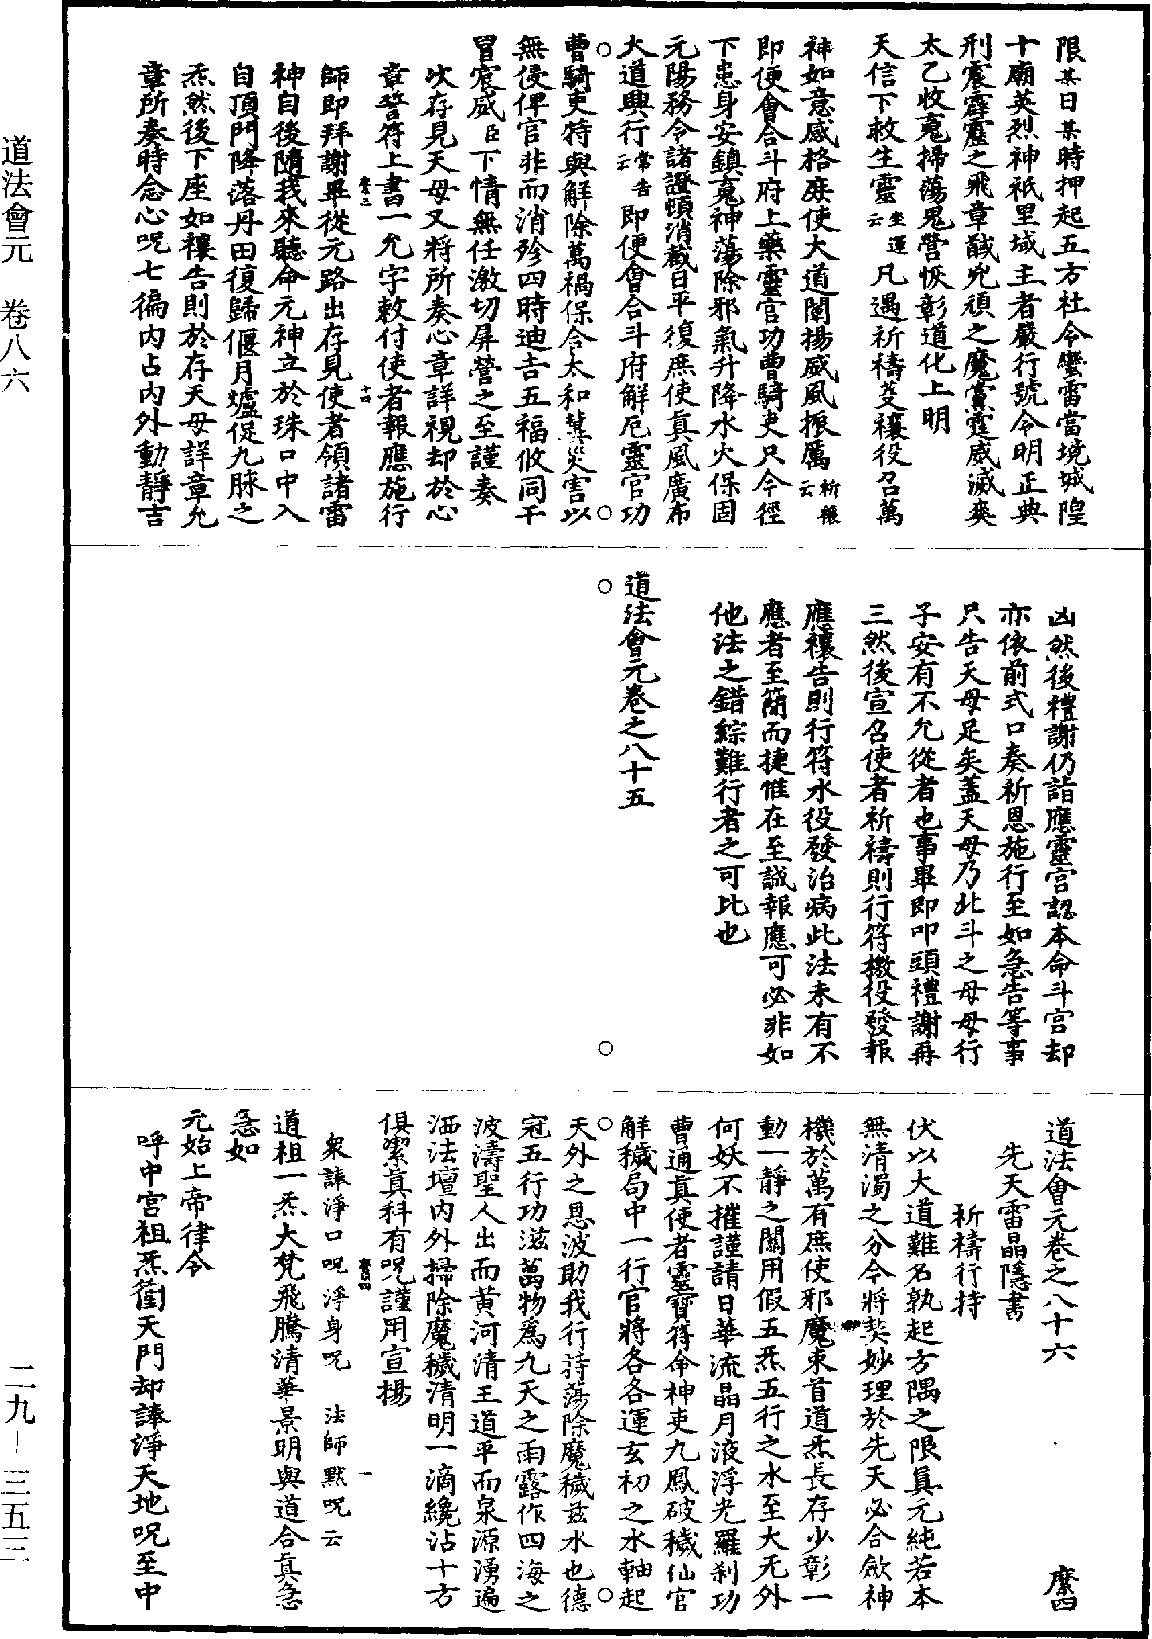 限某日某時押起五方社令蠻雷當境城隍
十廟英烈神祇里域主者嚴行號令明正典
刑震霹靂之飛章馘兇頑之魔賞霆威滅爽
太乙收䰟掃蕩鬼營恢彰道化上明
天信下救生靈云坐運凡遇祈禱芟禳役召萬
神如意感格庶使大道闡揚威風振厲云祈禳
即便會合斗府上藥靈官功曹騎吏只今徑
下患身安鎮䰟神蕩除邪氣升降水火保固
元陽務令諸證頓消截日平復庶使真風廣布
大道興行云常告即便會合斗府解厄靈官功
曹騎吏特與解除萬禍保合太和冀災害以
無侵俾官非而消殄四時迪吉五福攸同干
冒宸威臣下情無任激切屏營之至謹奏
次存見天母又將所奏心章詳視却於心
章誓符上書一允字敕付使者報應施行
師即拜謝畢從元路出存見使者領諸雷
神自後隨我來聽命元神立於珠口中入
自頂門降落丹田復歸偃月爐促九脉之
炁然後下座如禳告則於存天母詳章允
章所奏時念心呪七徧内占内外動靜吉
凶然後禮謝仍詣應靈宫認本命斗宫却
亦依前式口奏祈恩施行至如急告等事
只告天母足矣蓋天母乃北斗之母母行
子安有不允從者也事畢即叩頭禮謝再
三然後宣召使者祈禱則行符檄役發報
應禳告則行符水役發治病此法未有不
應者至簡而捷惟在至誠報應可必非如
他法之錯綜難行者之可比也
道法會元卷之八十五
道法會元卷之八十六 縻四
先天雷晶隱書
祈禱行持
伏以大道難名孰起方隅之限真元純若本
無清濁之分今將契妙理於先天必合歛神
機於萬有庶使邪魔束首道炁長存少彰一
動一靜之關用假五炁五行之水至大无外
何妖不摧謹請日華流晶月液浮光羅刹功
曹通真使者靈寶符命神吏九鳳破穢仙官
解穢局中一行官將各各運玄初之水軸起
天外之恩波助我行持蕩除魔穢茲水也德
冠五行功滋萬物爲九天之雨露作四海之
波濤聖人出而黄河清王道平而泉源湧遍
洒法壇内外掃除魔穢清明一滴纔沾十方
俱潔真科有呪謹用宣揚
衆誄淨口呪 淨身呪 法師默呪云
道祖一炁大梵飛騰清華景明與道合真急
急如
元始上帝律令
呼中宫祖炁衝天門却誄淨天地呪至中
道法會元 卷八六 二九-三五三